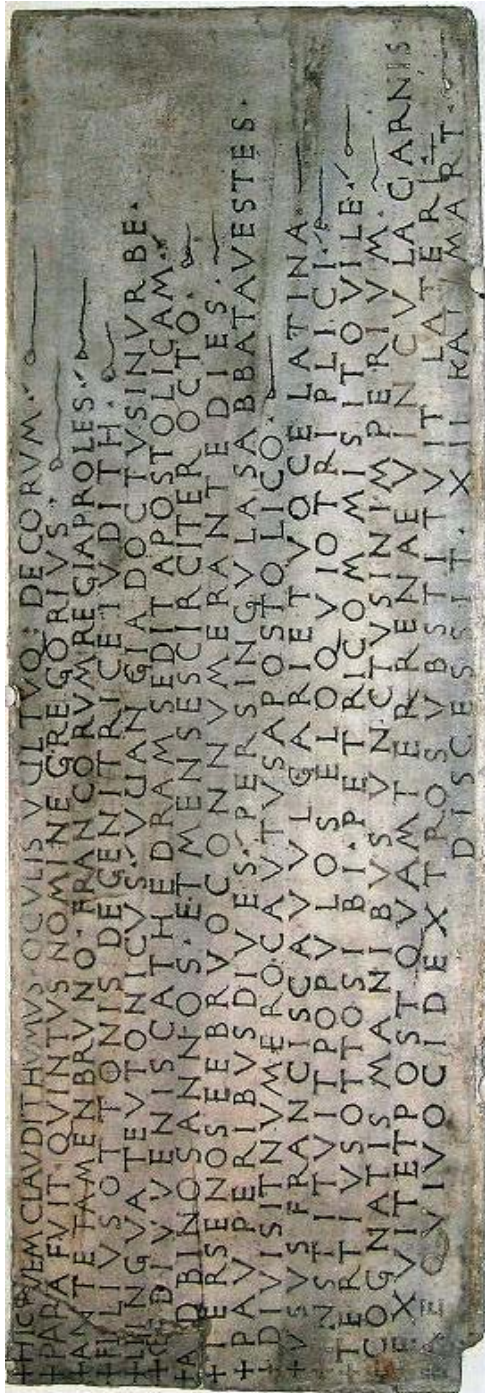 + HIC QVEM CLAVDIT HVMVS · OCVLIS VVLTVQ: DECORVM ·
+ PAPA FVIT QVINTVS NOMINE GREGORIVS ·
+ ANTE TAMEN BRVNO · FRANCORVM REGIA PROLES ·
+ FILIVS OTTONIS DE GENITRICE IVDITH ·
+ LINGVA TEVTONICVS · VVANGIA DOCTVS IN VRBE ·
+ SED IVVENIS CATHEDRAM SEDIT APOSTOLICAM ·
+ AD BINOS ANNOS · ET MENSES CIRCITER OCTO ·
+ TER SENOS FEBRVO CONNVMERANTE DIES ·
+ PAVPERIBVS DIVES · PER SINGVLA SABBATA VESTES ·
+ DIVISIT NVMERO CAVTVS APOSTOLICO ·
+ VSVS FRANCISCA VVLGARI ET VOCE LATINA ·
INSTITVIT POPVLOS ELOQVIO TRIPLICI ·
+ TERTIVS OTTO SIBI · PETRI COMMISIT OVILE ·
+ COGNATIS MANIBVS VNCTVS IN IMPERIVM ·
EXVIT ET POSTQVAM TERRENAE VINCVLA CARNIS ·
AEQVIVOCI DEXTRO SVBSTITVIT LATERI +
DISCESSIT · XII KAL MART ·